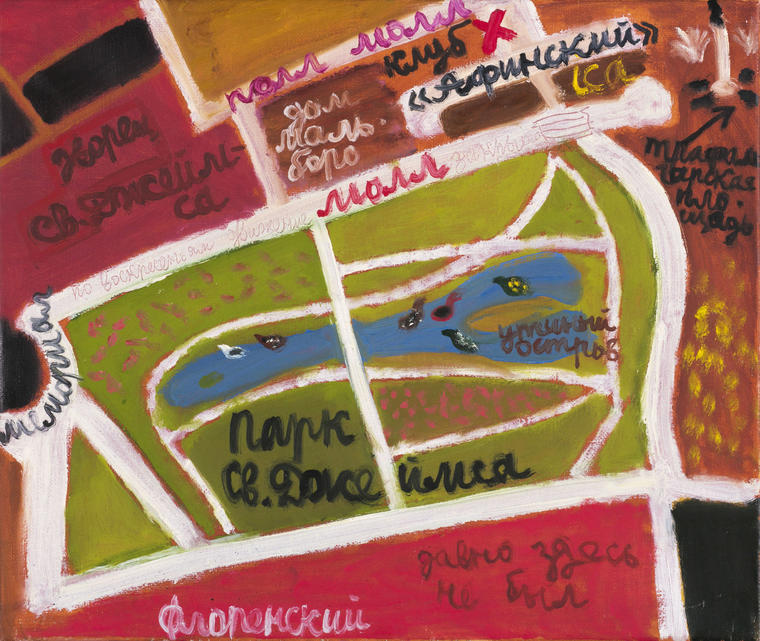 пали молл
клуб х
«Афинский»
IСА
дом
маль-
боро
дворец
св. Джеймс-
са
молл
по воскресеньям движение
закрыто
трафаль
гарская
пло-
щадь
мемориал
утиный
остров
Парк
св. Джеймса
давно здесь
не был
Флоренский